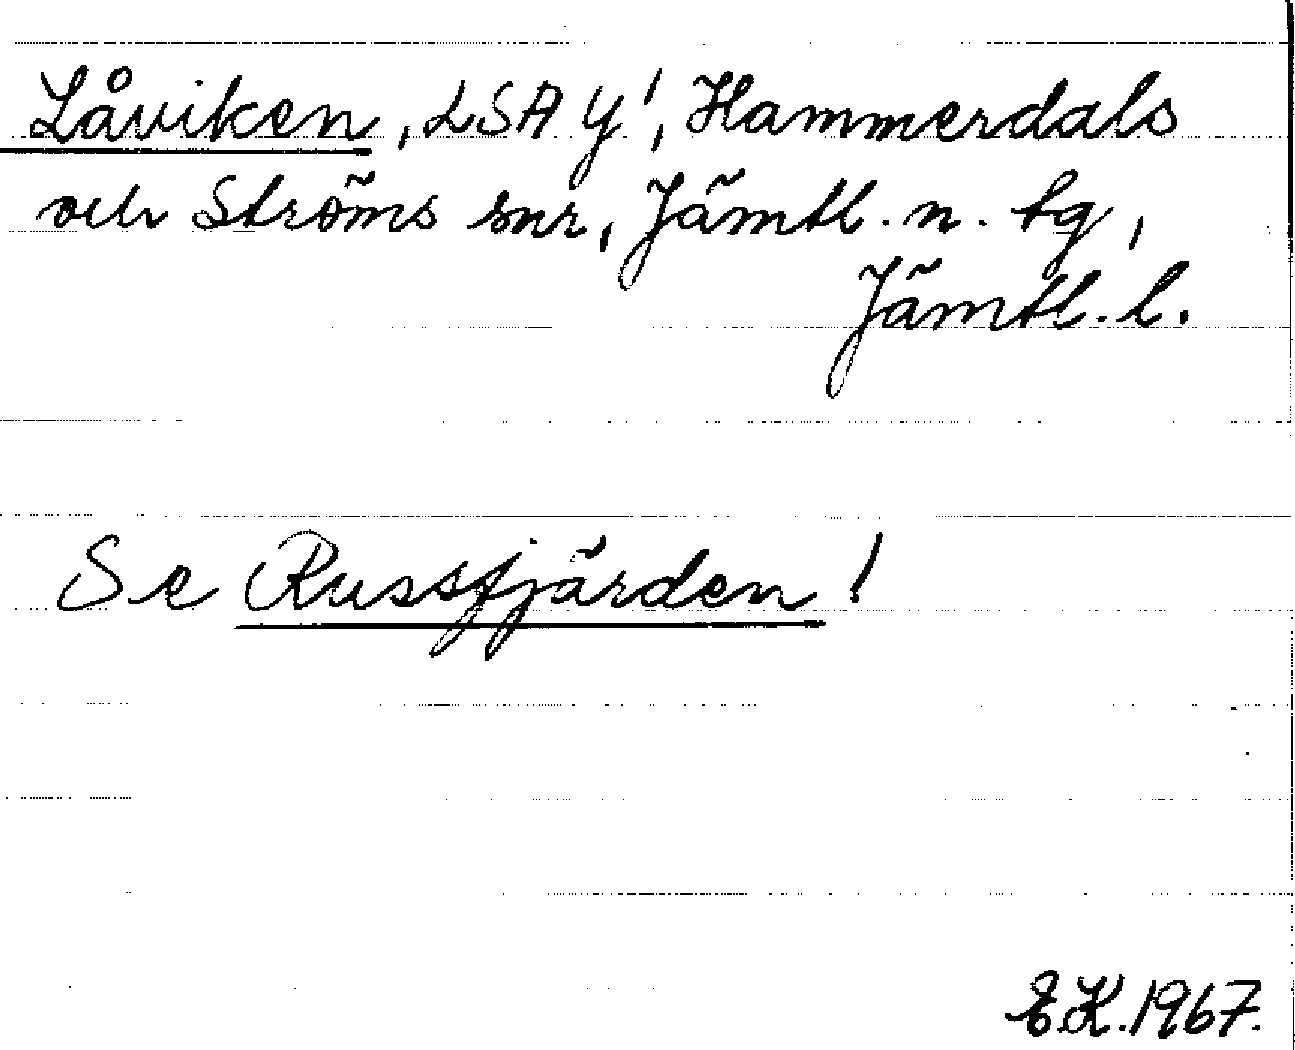 Låviken, LSA Y!, Hammerdals
och Ströms snr, Jämtl. n. tg,
Jämtl. l.
Se Russfjärden!
E.K. 1967.